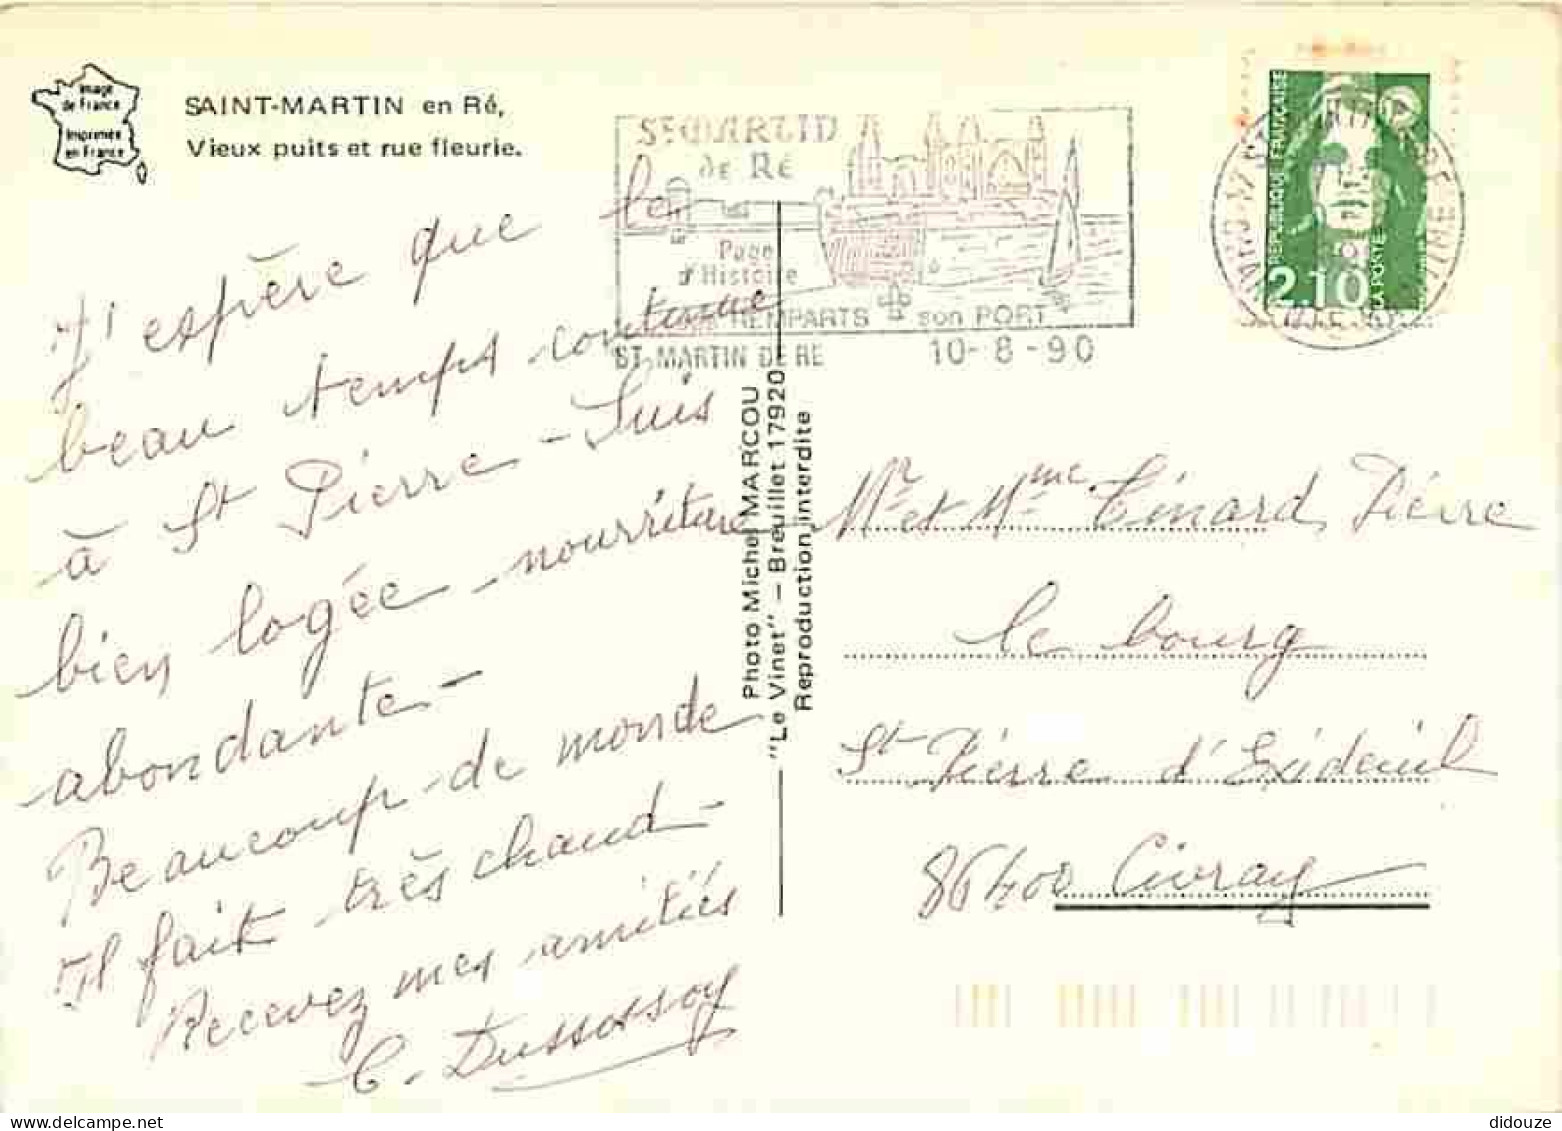 Image
de France
Imprimée
en France
SAINT-MARTIN en Ré,
Vieux puits et rue fleurie.
St MARTIN
DE RÉ
Page
d'Histoire
REMPARTS son PORT
ST MARTIN DE RE 10-8-90
REPUBLIQUE FRANÇAISE
2,10
LA POSTE
J'espère que le
beau temps continue
à St Pierre - Suis
bien logée nourriture
abondante -
Beaucoup de monde
Il fait très chaud -
Recevez mes amitiés
C. Dussossoy
Photo Michel MARCOU
"Le Vinet" - Breuillet 17920
Reproduction interdite
Mr et Mme Cénard Pierre
le bourg
St Pierre d'Exideuil
86400 Civray
didouze